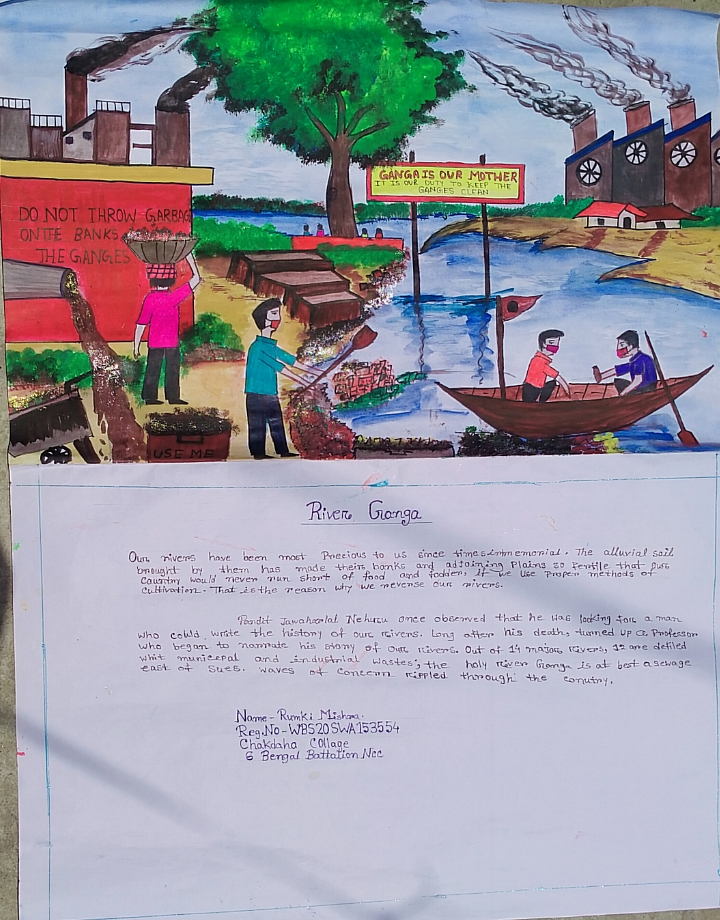 GANGA IS OUR MOTHER
IT IS OUR DUTY TO KEEP THE
GANGES CLEAN
DO NOT THROW GARBAG
ONTHE BANKS
THE GANGES
USE ME
River Ganga
Our rivers have been most Precious to us since times immemorial. The alluvial soil
brought by them has made theirs banks and adjoining Plains so fertile that our
Country would never run short of food and fodder, if we use Proper methods of
cultivation. That is the reason why we reverse our rivers.
Pandit Jawaharlal Nehuru once observed that he was looking for a man
who could write the history of our rivers. Long after his death, turned up a Professor
who began to narrate his story of our rivers. Out of 14 majors rivers, 12 are defiled
whit municepal and industrial wastes, the holy river Ganga is at best a sewage
east of Sues. waves of Concern rippled through the conutry.
Name - Rumki Mishra
Reg.No - WBS20SWA153554
Chakdaha Collage
6 Bengal Battation Ncc